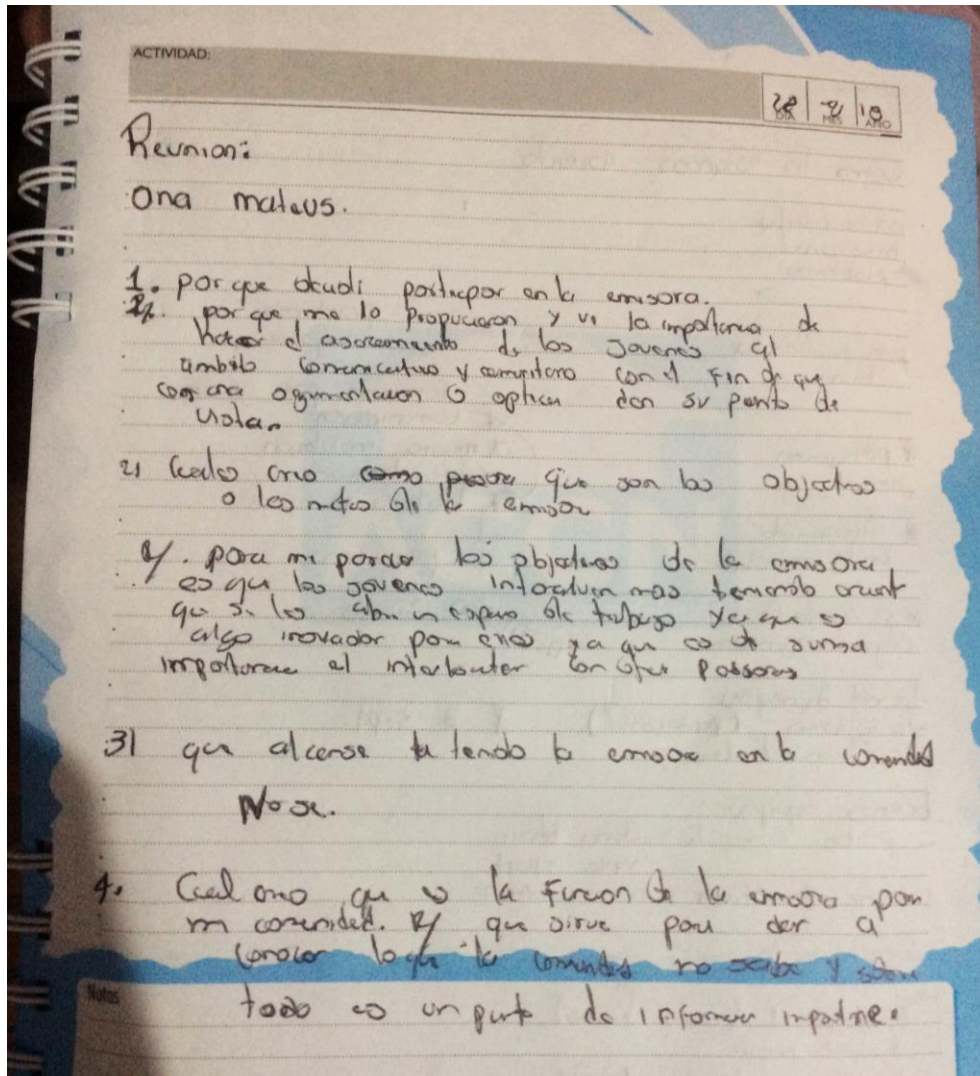 ACTIVIDAD:
28 18
DIA MES AÑO
Reunion:
Ona mateus.
1. por que participar en la emisora.
R/. por que me lo propucieron y vi la importancia de
hacer el acercamiento de los jovenes al
ambito comunicativo y comunitario con el fin de que
con una argumentacion o optica den su punto de
vista.
2) Cuales creo como que son los objectivos
o las metas de la emisora
R/. para mi parecer los objetivos de la emisora
es que los jovenes mas teniendo
que se les abre un espacio de trabajo ya que es
algo inovador para ellos ya que es de suma
importancia el con otras Personas
3) que alcance ha tenido la emisora en la comunidad
No se.
4. Cual creo que es la Funcion de la emisora para
mi comunidad. R/ que sirve para dar a
conocer lo que la comunidad no sabe y sobre
Notas
todo es un punto de importante.